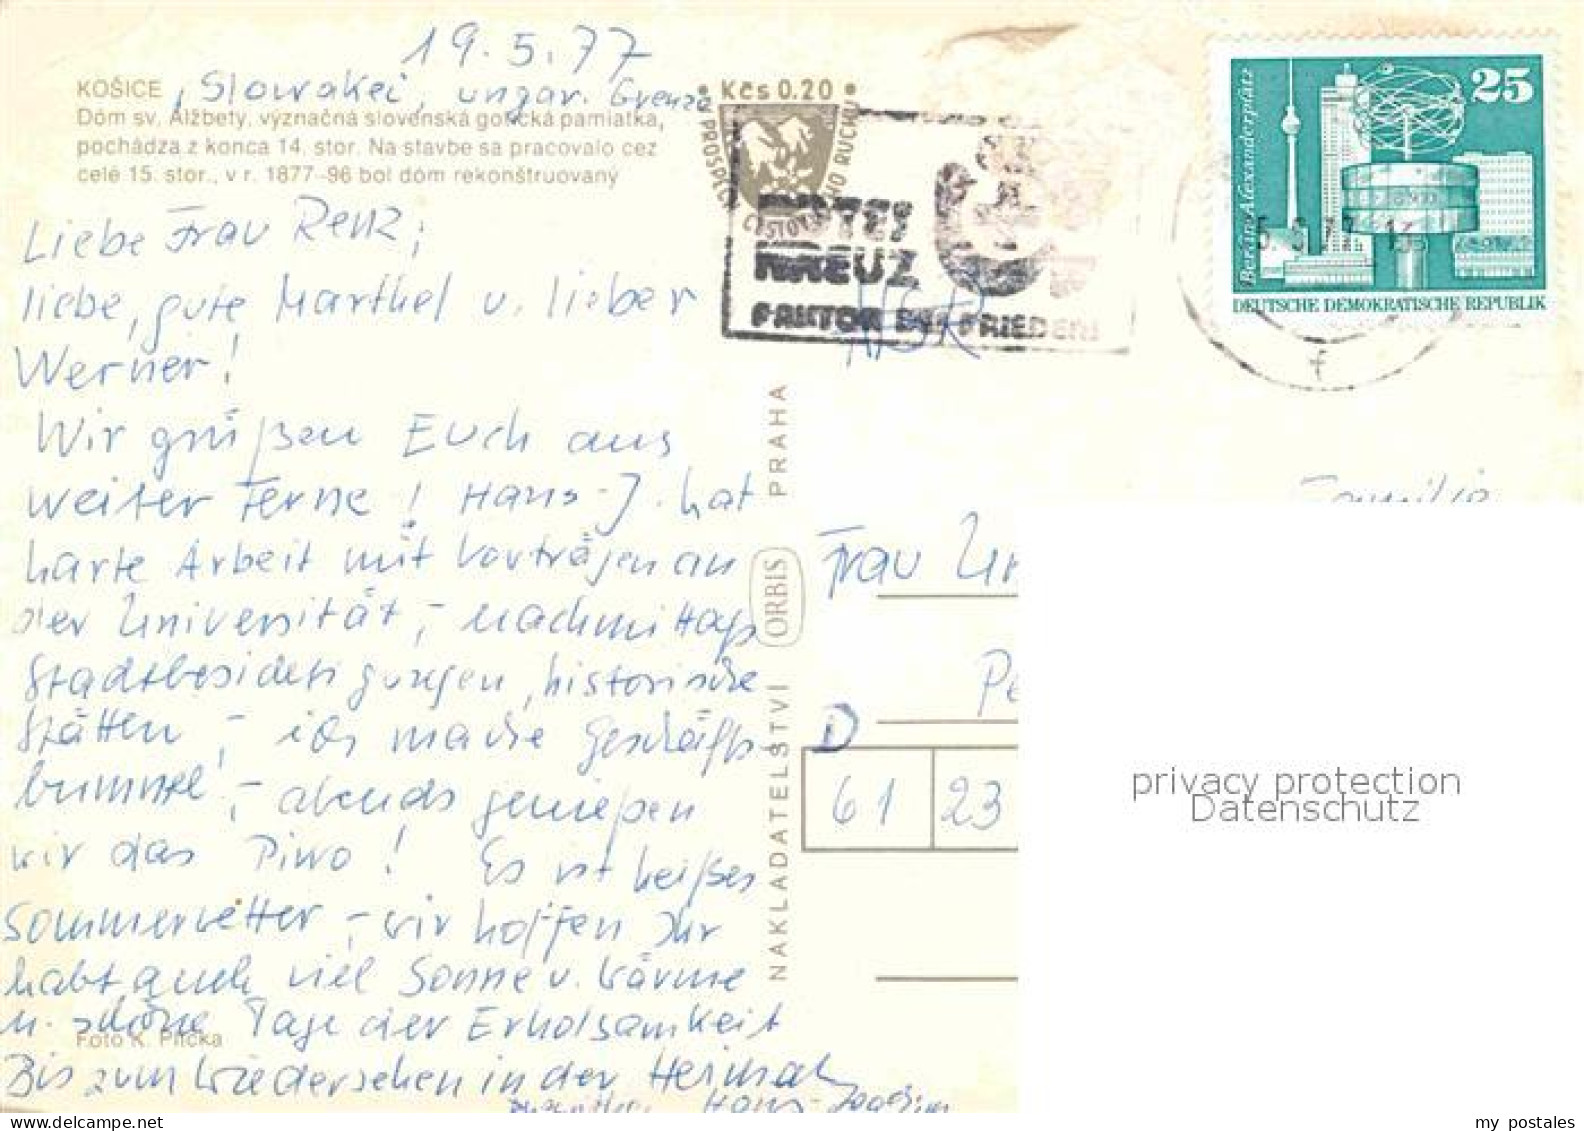 19.5.77
KOŠICE, Slowakei, ungar. Grenze
Dóm sv. Alžbety, význačná slovenská gotická pamiatka,
pochádza z konca 14. stor. Na stavbe sa pracovalo cez
celé 15. stor., v r. 1877-96 bol dóm rekonštruovaný
Liebe Frau Renz,
liebe, gute Marthel u. lieber
Werner!
Wir grüßen Euch aus
weiter Ferne! Hans-J. hat
harte Arbeit mit Vorträgen an
der Universität, – nachmittags
Stadtbesichtigungen, historische
Stätten, – ich mache Geschäfts
bummel! – abends genießen
wir das Pivo! Es ist heißes
Sommerwetter – wir hoffen Ihr
habt auch viel Sonne u. Wärme
u. schöne Tage der Erholsamkeit
Foto K. Plicka
Bis zum Wiedersehen in der Heimat
Hans-Joachim
• Kčs 0.20 •
PROSPĚCH CESTOVNÍHO RUCHU
KREUZ
FAKTOR DES FRIEDENS
NAKLADATELSTVÍ ORBIS PRAHA
25
Berlin-Alexanderplatz
DEUTSCHE DEMOKRATISCHE REPUBLIK
f
Familie
Frau
D
61 23
privacy protection
Datenschutz
my postales